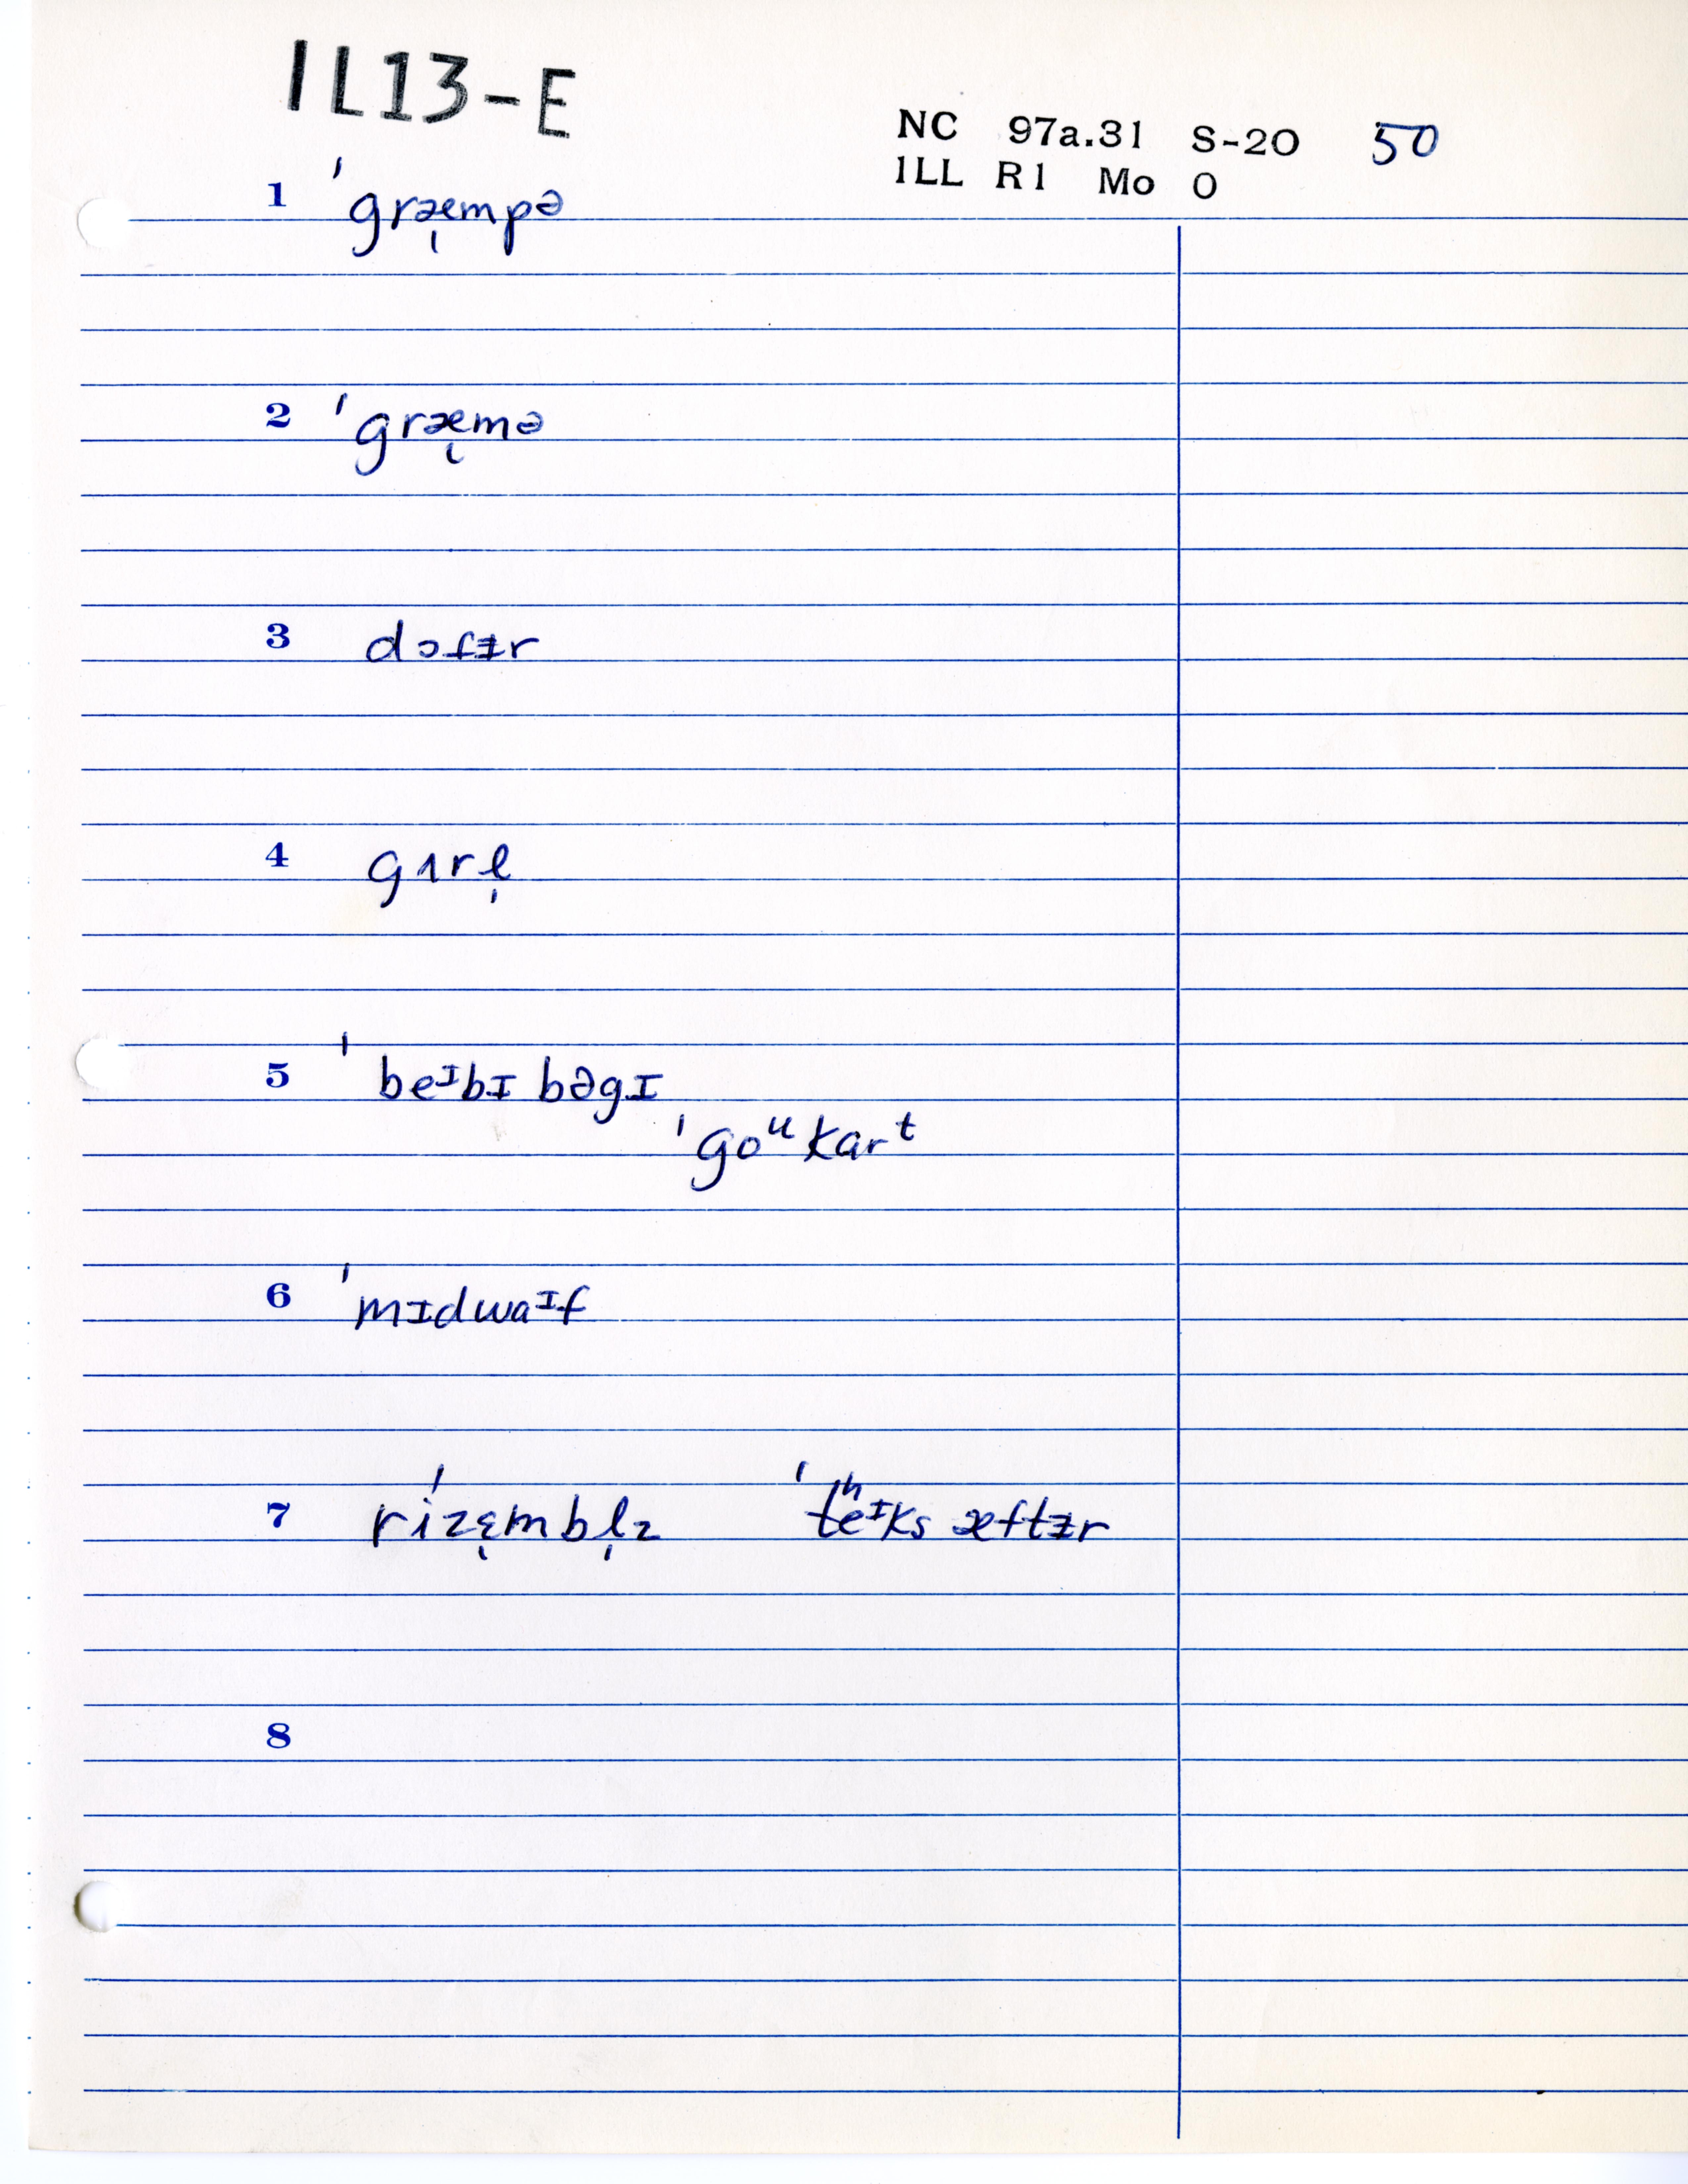 IL13-E
NC 97a.31 S-20 50
ILL R1 Mo 0
1 ˈgræ̨mpə
2 ˈgræ̨mə
3 dɔfᵻr
4 gɪrl̩
5 ˈbeᶦbɪ bəgɪ
ˈgoᵘkarᵗ
6 ˈmɪdwaᶦf
7 riˈzę̈mbl̩z ˈtʰeᶦks æftᵻr
8